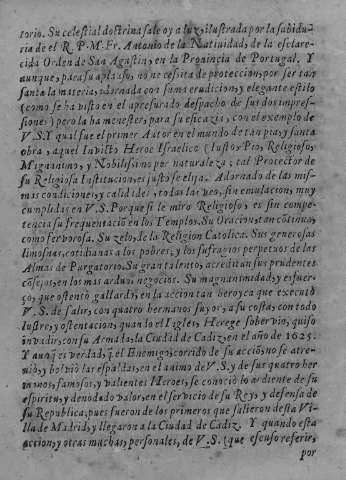 torio. Su celestial doctrina sale oy a luz, ilustrada por la sabidu-
ria de el R. P. M. Fr. Antonio de la Natiuidad, de la esclare-
cida Orden de San Agustin, en la Prouincia de Portugal. Y
aunque, para su aplauso, no necessita de proteccion, por ser tan
santa la materia, adornada con suma erudicion, y elegante estilo
(como se ha visto en el apresurado despacho de sus dos impres-
siones) pero la ha menester, para su eficazia, con el exemplo de
V.S. Y qual fue el primer Autor en el mundo de tan pia, y santa
obra, aquel Inuicto Heroe Israelico (Iusto, Pio, Religioso,
Magnanimo, y Nobilissimo por naturaleza; tal Protector de
su Religiosa Institucion, es justo se elija. Adornado de las mis-
mas condiciones, y calidades, todas las veo, sin emulacion, muy
cumplidas en V.S. Porque si le miro Religioso, es sin compe-
tencia su frequentacio en los Templos. Su Oracion, tan cõtinua,
como fervorosa. Su zelo, de la Religion Catolica. Sus generosas
limosnas, cotidianas a los pobres, y los sufragios perpetuos de las
Almas de Purgatorio. Su gran talento, acreditan sus prudentes
cõsejos, en los mas arduos negocios. Su magnanimidad, y esfuer-
ço, que ostentò gallardo, en la accion tan heroyca que executò
V.S. de salir, con quatro hermanos suyos, a su costa, con todo
lustre, y ostentacion, quando el Ingles, Herege sobervio, quiso
invadir, con su Armada, la Ciudad de Cadiz, en el año de 1625.
Y aunq̃ es verdad, q̃ el Enemigo, corrido de su acciõ, no se atre-
uio, y boluiò las espaldas, en el animo de V.S. y de sus quatro her
manos, famosos, y valientes Heroes, se conociò lo ardiente de su
espiritu, y denodado valor, en el servicio de su Rey, y defensa de
su Republica, pues fueron de los primeros que salieron desta Vi-
lla de Madrid, y llegaron a la Ciudad de Cadiz. Y quando esta
accion, y otras muchas, personales, de V.S. (que escuso referir,
por